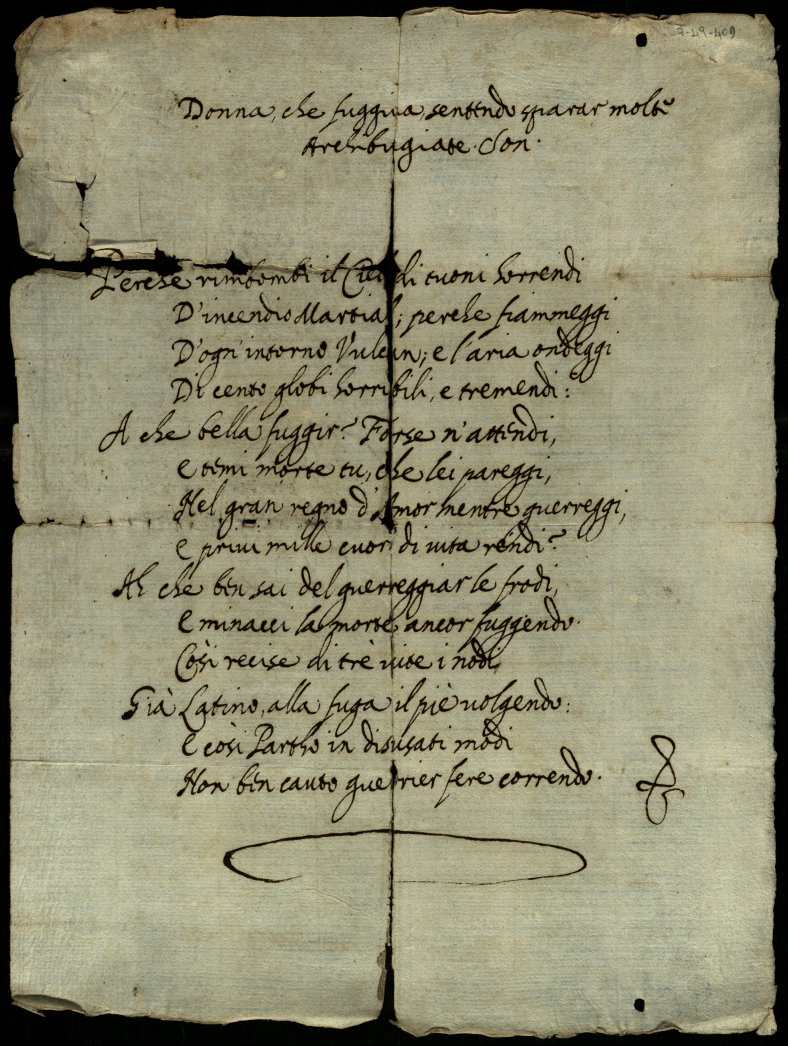 7-49-409
Donna, che fuggiua, sentendo sparar molte
Archibugiate. Son.
Perche rimbombi il Ciel di tuoni horrendi
D'incendio Martial; perche fiammeggi
D'ogn'intorno Vulcan; e l'aria ondeggi
Di cento globi horribili, e tremendi:
A che bella fuggir? Forse n'attendi,
e temi morte tu, che lei pareggi,
Nel gran regno d'Amor mentre guerreggi,
e priui mille cuor di uita rendi?
Ah che ben sai del guerreggiar le frodi,
E minacci la morte ancor fuggendo.
Così recise di trè uite i nodi
Già Latino, alla fuga il piè uolgendo:
E così Partho in disusati modi
Non ben cauto guerrier fere correndo.